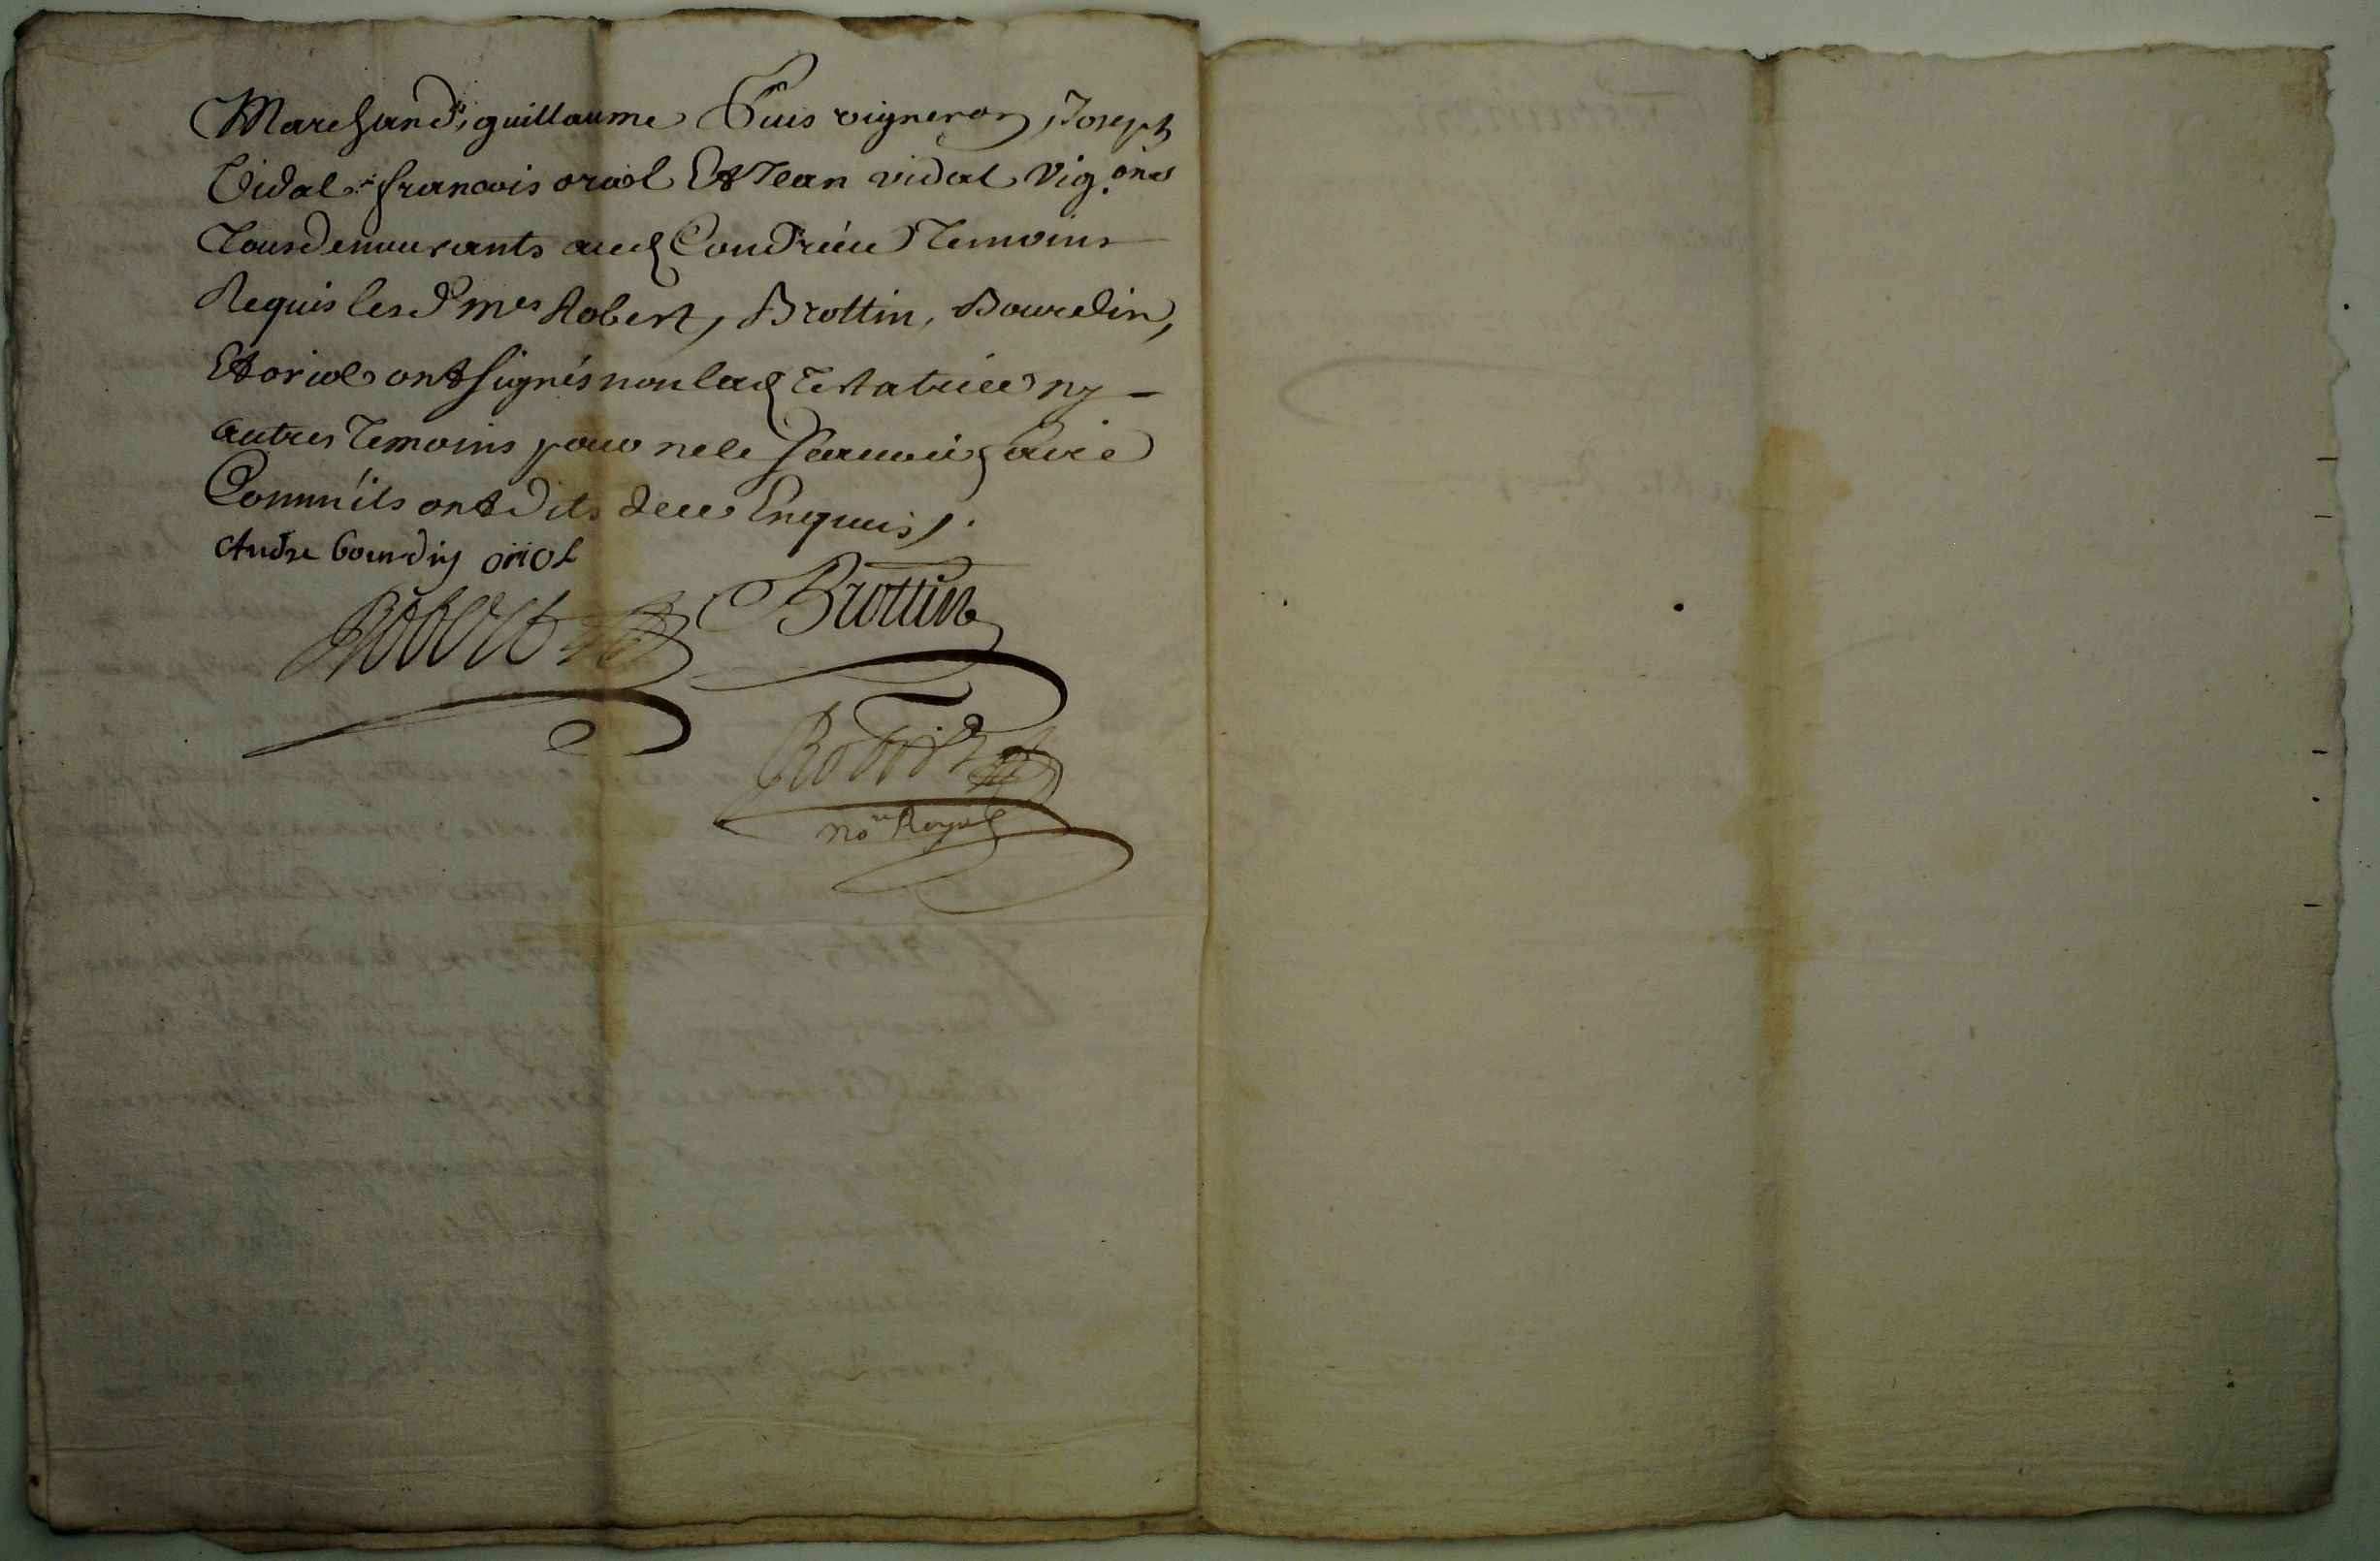 Marchand, guillaume Puis vigneron, Joseph
Vidal francois oriol Et Jean vidal Vig.ons
Tous demeurants aud Condrieu Temoins
Requis lesd mes Robert, Brottin, Bourdin,
Et oriol ont signés non lad Testatrice ny
autres Temoins pour ne le scauoir faire
Comm'ils ont dits de ce Enquis /.
Andre bourdin oriol
Robert Brottin
Robert
nore Royal